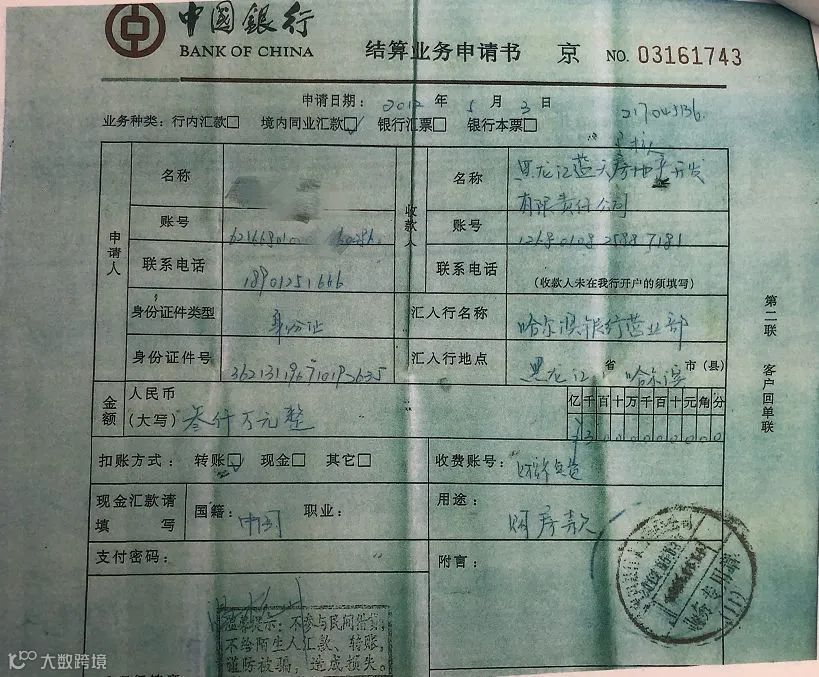 中國銀行
BANK OF CHINA
结算业务申请书 京 NO. 03161743
申请日期： 2012 年 5 月 3 日
业务种类：行内汇款□ 境内同业汇款☑ 银行汇票□ 银行本票□
申请人
名称
账号
联系电话 18901251666
身份证件类型 身份证
身份证件号
收款人
名称 黑龙江蓝天房地产开发
有限责任公司
账号
联系电话
(收款人未在我行开户的须填写)
汇入行名称 哈尔滨银行营业部
汇入行地点 黑龙江 省 哈尔滨 市(县)
金额
人民币
(大写) 叁仟万元整
亿 千 百 十 万 千 百 十 元 角 分
¥ 3 0 0 0 0 0 0 0 0 0
扣账方式： 转账☑ 现金□ 其它□
收费账号：
现金汇款请
填 写
国籍： 中国 职业：
用途：
购房款
支付密码：
附言：
第二联 客户回单联
温馨提示：不参与民间借贷，
不给陌生人汇款、转账，
谨防被骗，造成损失。
大数跨境